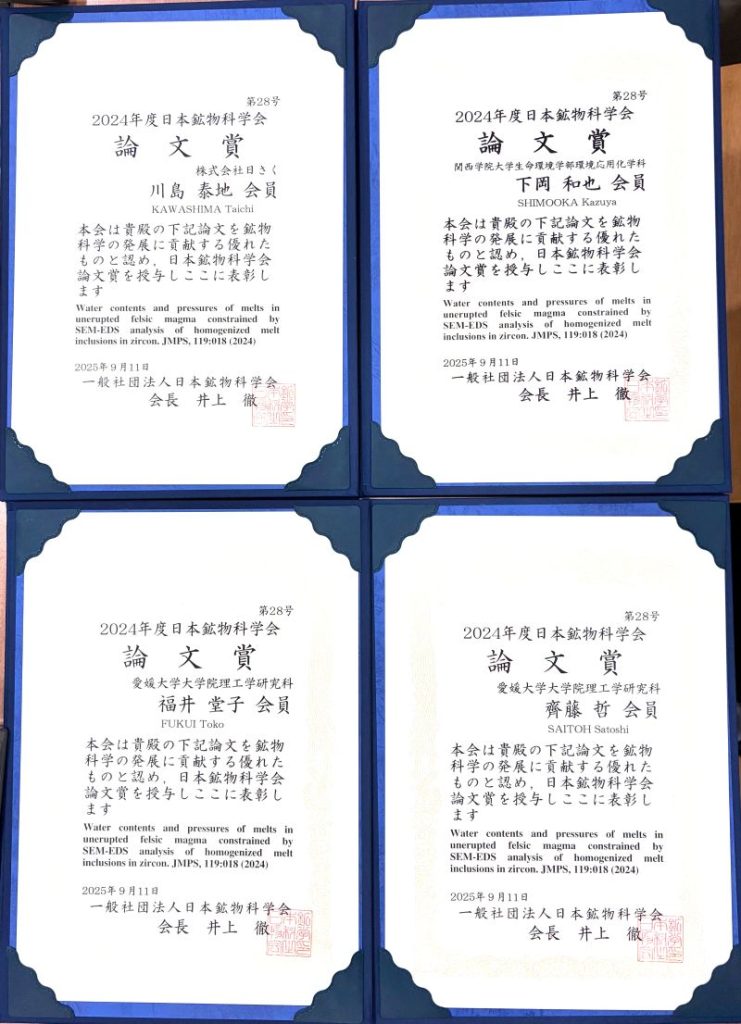 第28号
2024年度日本鉱物科学会
論文賞
株式会社日さく
川島 泰地 会員
KAWASHIMA Taichi
本会は貴殿の下記論文を鉱物
科学の発展に貢献する優れた
ものと認め，日本鉱物科学会
論文賞を授与しここに表彰し
ます
Water contents and pressures of melts in
unerupted felsic magma constrained by
SEM-EDS analysis of homogenized melt
inclusions in zircon. JMPS, 119:018 (2024)
2025年9月11日
一般社団法人日本鉱物科学会
会長 井上 徹
第28号
2024年度日本鉱物科学会
論文賞
関西学院大学生命環境学部環境応用化学科
下岡 和也 会員
SHIMOOKA Kazuya
本会は貴殿の下記論文を鉱物
科学の発展に貢献する優れた
ものと認め，日本鉱物科学会
論文賞を授与しここに表彰し
ます
Water contents and pressures of melts in
unerupted felsic magma constrained by
SEM-EDS analysis of homogenized melt
inclusions in zircon. JMPS, 119:018 (2024)
2025年9月11日
一般社団法人日本鉱物科学会
会長 井上 徹
第28号
2024年度日本鉱物科学会
論文賞
愛媛大学大学院理工学研究科
福井 堂子 会員
FUKUI Toko
本会は貴殿の下記論文を鉱物
科学の発展に貢献する優れた
ものと認め，日本鉱物科学会
論文賞を授与しここに表彰し
ます
Water contents and pressures of melts in
unerupted felsic magma constrained by
SEM-EDS analysis of homogenized melt
inclusions in zircon. JMPS, 119:018 (2024)
2025年9月11日
一般社団法人日本鉱物科学会
会長 井上 徹
第28号
2024年度日本鉱物科学会
論文賞
愛媛大学大学院理工学研究科
齊藤 哲 会員
SAITOH Satoshi
本会は貴殿の下記論文を鉱物
科学の発展に貢献する優れた
ものと認め，日本鉱物科学会
論文賞を授与しここに表彰し
ます
Water contents and pressures of melts in
unerupted felsic magma constrained by
SEM-EDS analysis of homogenized melt
inclusions in zircon. JMPS, 119:018 (2024)
2025年9月11日
一般社団法人日本鉱物科学会
会長 井上 徹